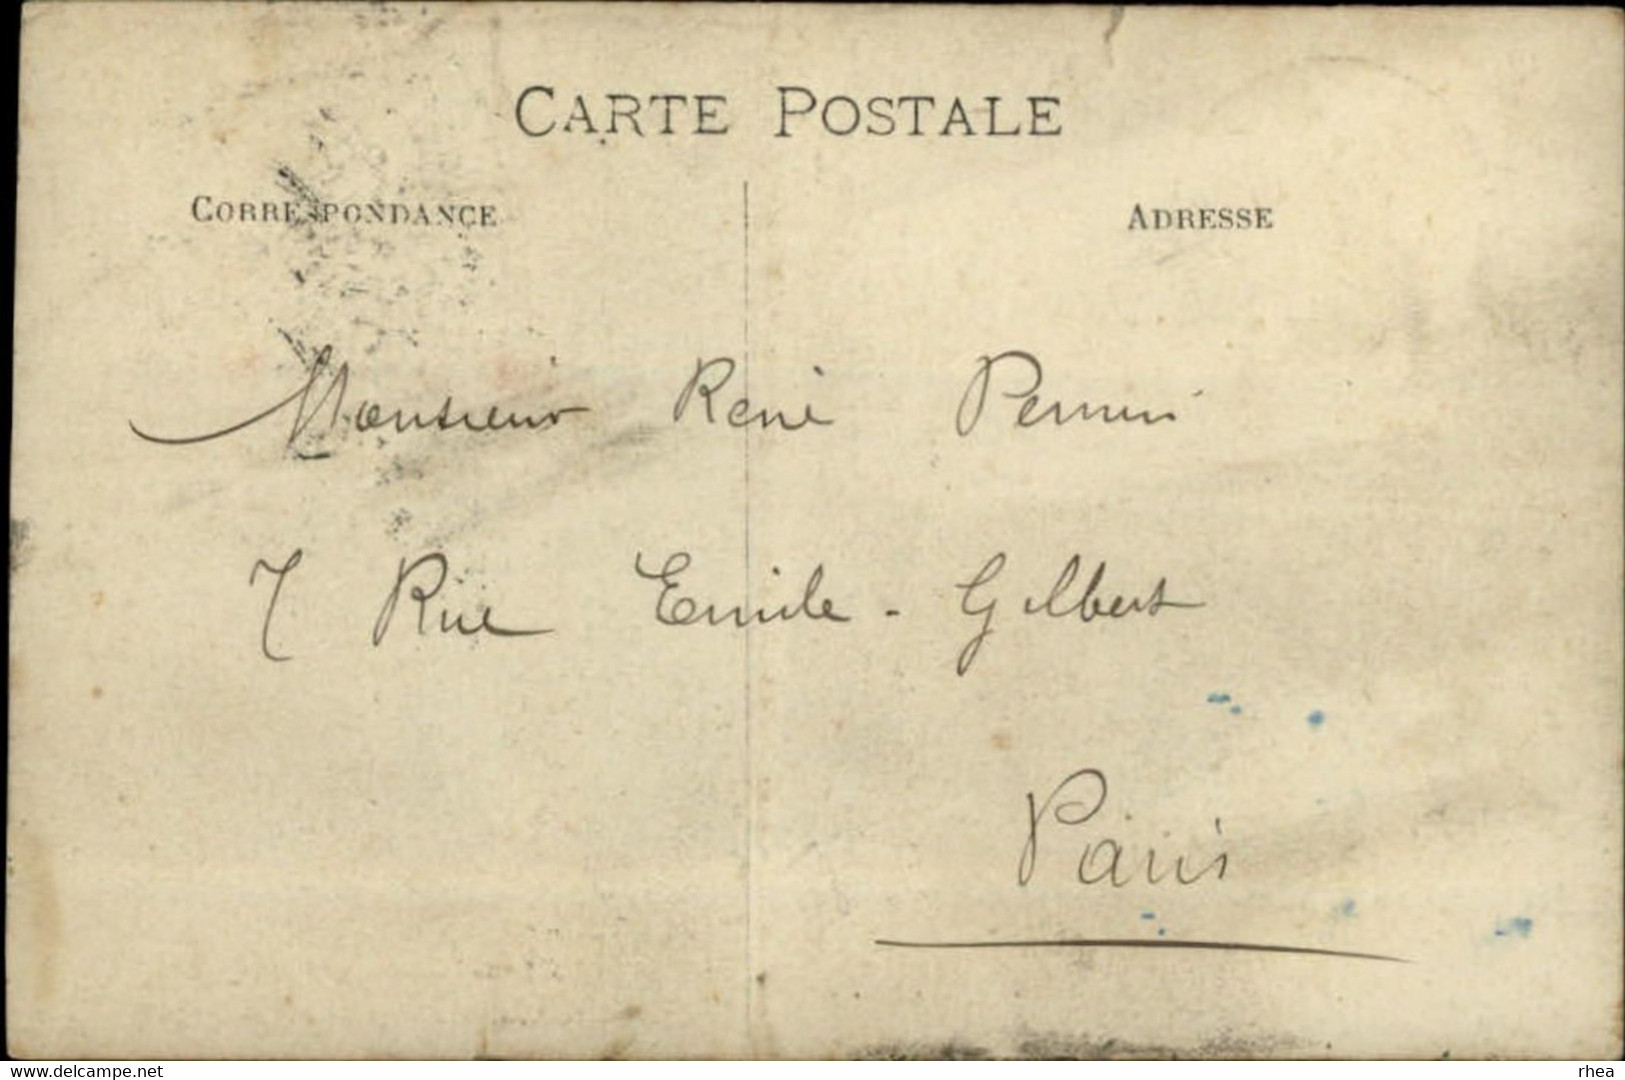 CARTE POSTALE
CORRESPONDANCE ADRESSE
Monsieur René Perrin
7 Rue Emile-Gilbert
Paris
www.delcampe.net rhea